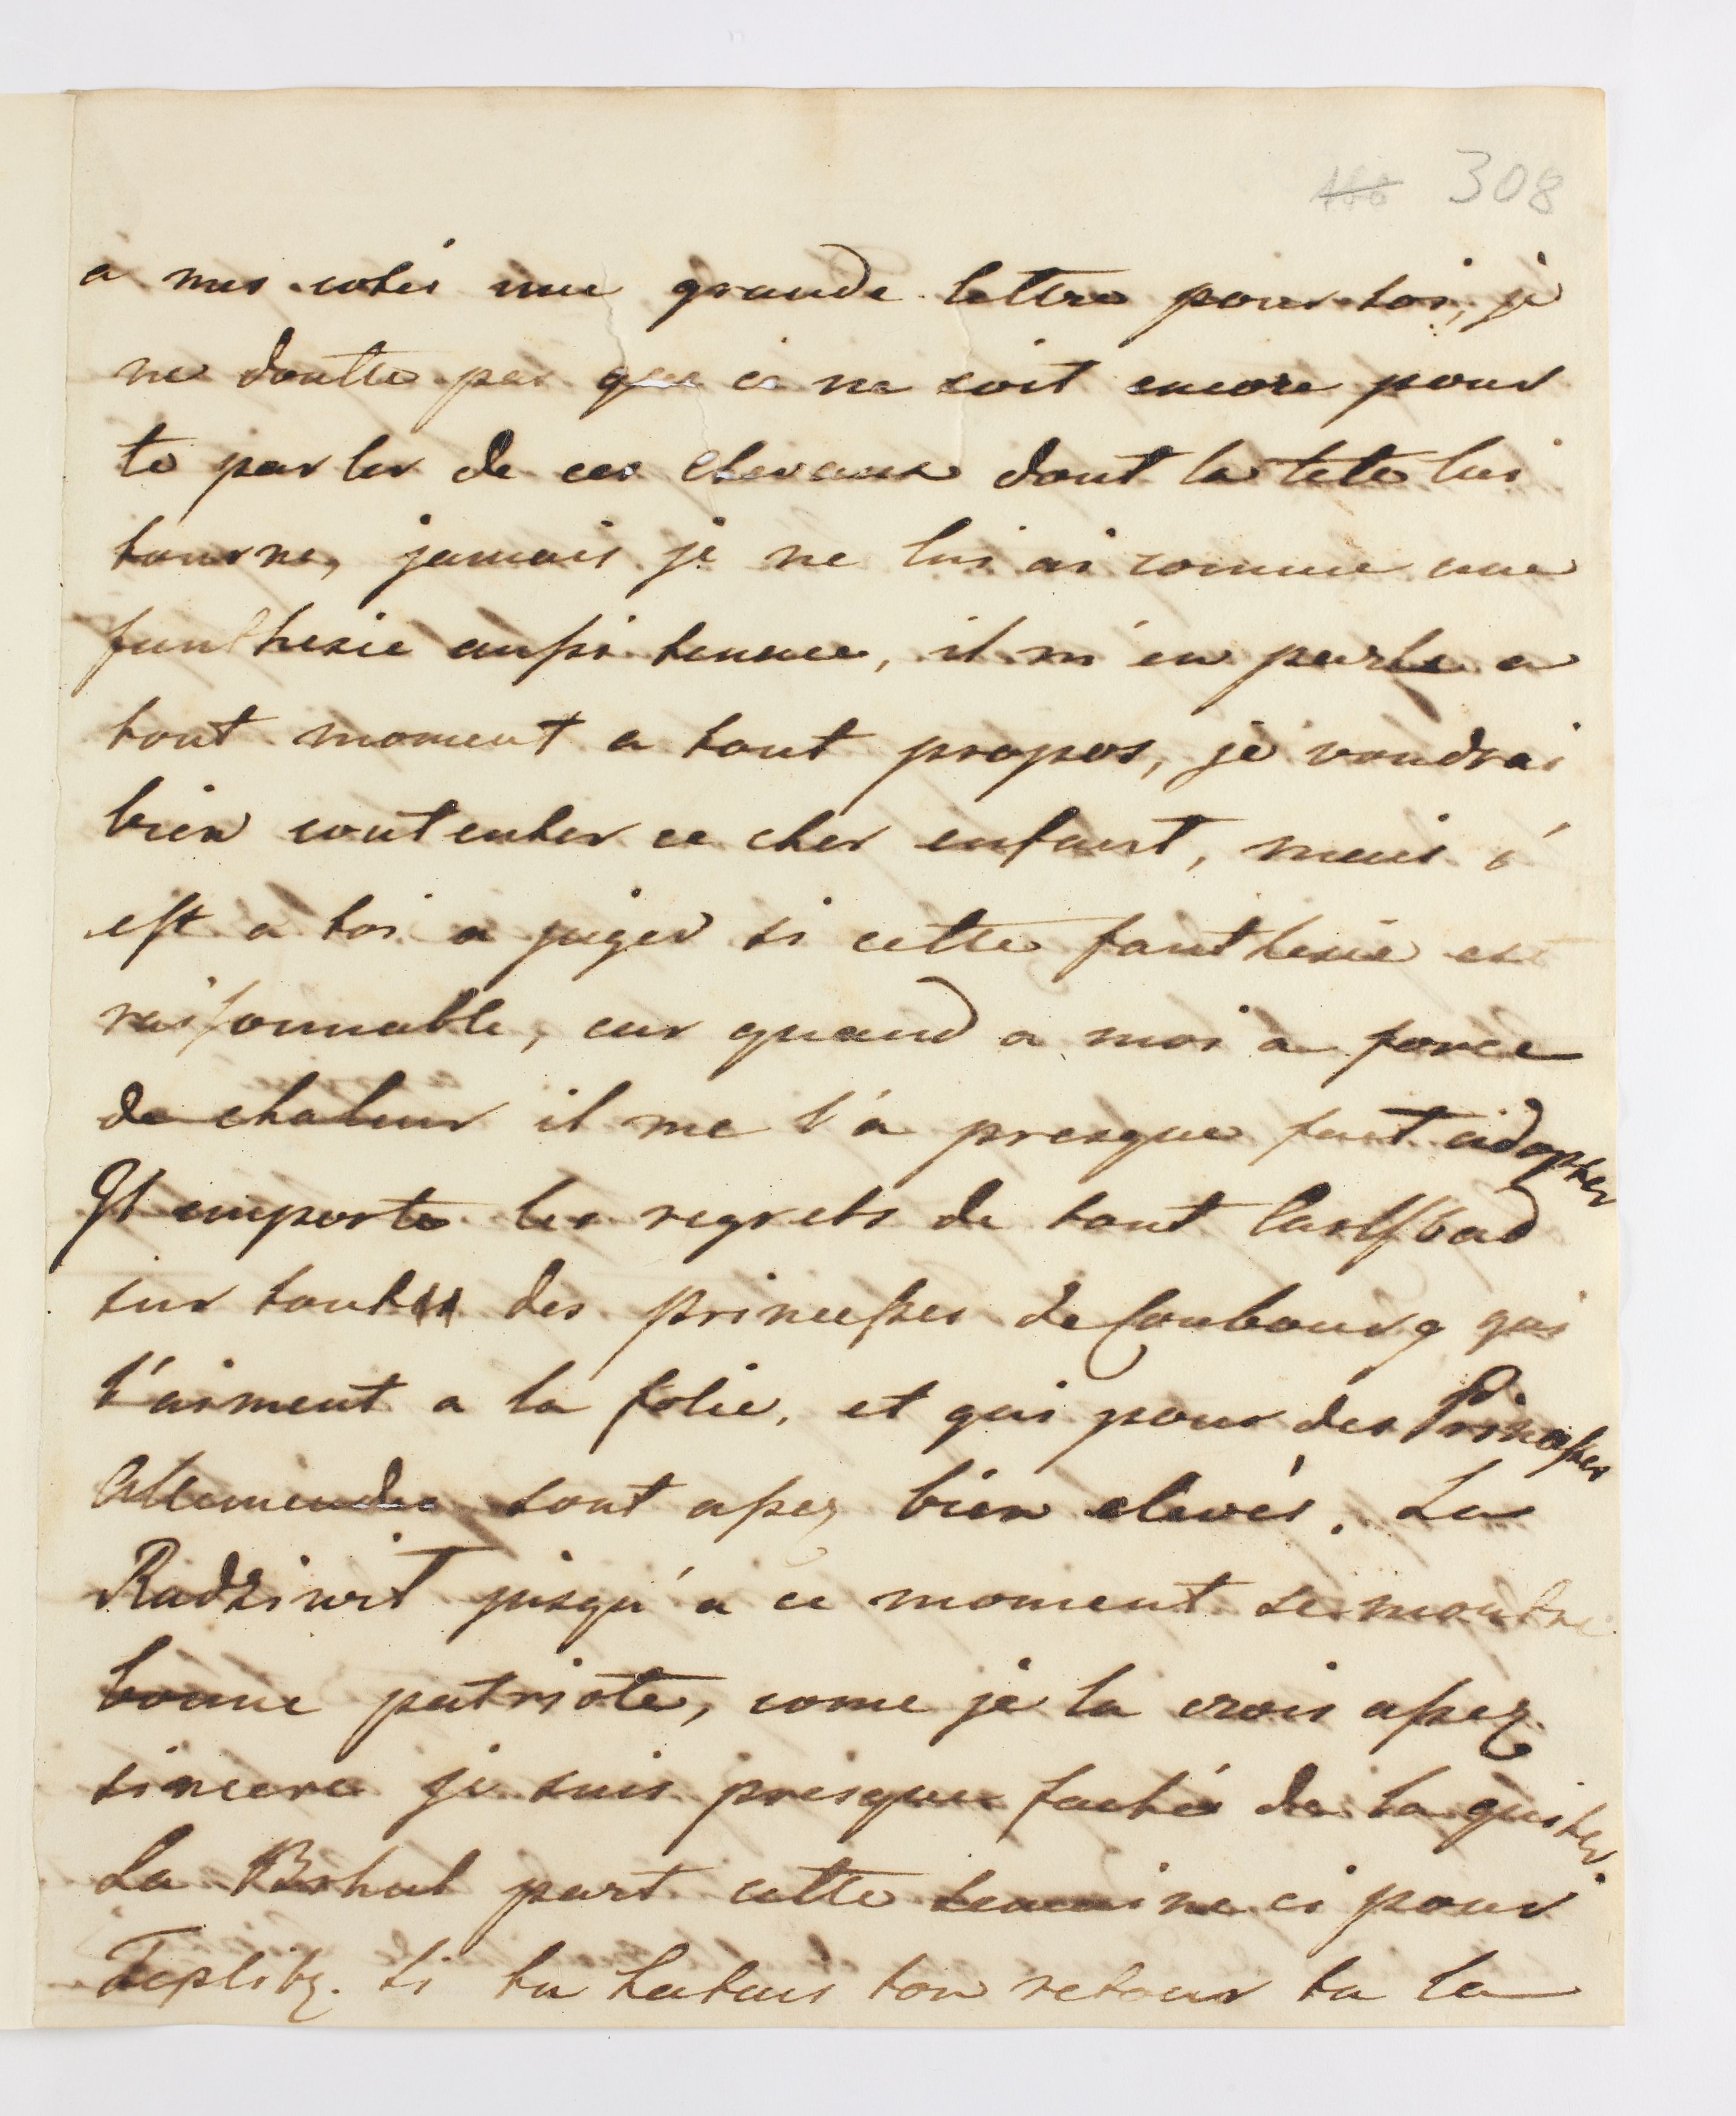 308
a mes cotés une grande lettre pour toi, je
ne doutte pas que ce ne soit encore pour
te parler de ces chevaux dont la tete lui
tourne, jamais je ne lui ai connue une
fanthesie aussi tenace, il m'en parle a
tout moment a tout propos, je voudrai
bien contenter ce cher enfant, mais c'
est a toi a juger si cette fanthesie est
raisonnable, car quand a moi a force
de chaleur il me l'a presque fait adopter
Il emporte les regrets de tout Carlsbad
sur tout des princesses de Coubourg qui
l'aiment a la folie, et qui pour des Princesses
Allemendes sont assez bien elevés. La
Radziwil jusqu'a ce moment se montre
bonne patriote, come je la crois assez
sincere je suis presque faché de la quiter.
La part cette semaine ci pour
Teplitz. Si tu hatais ton retour tu la